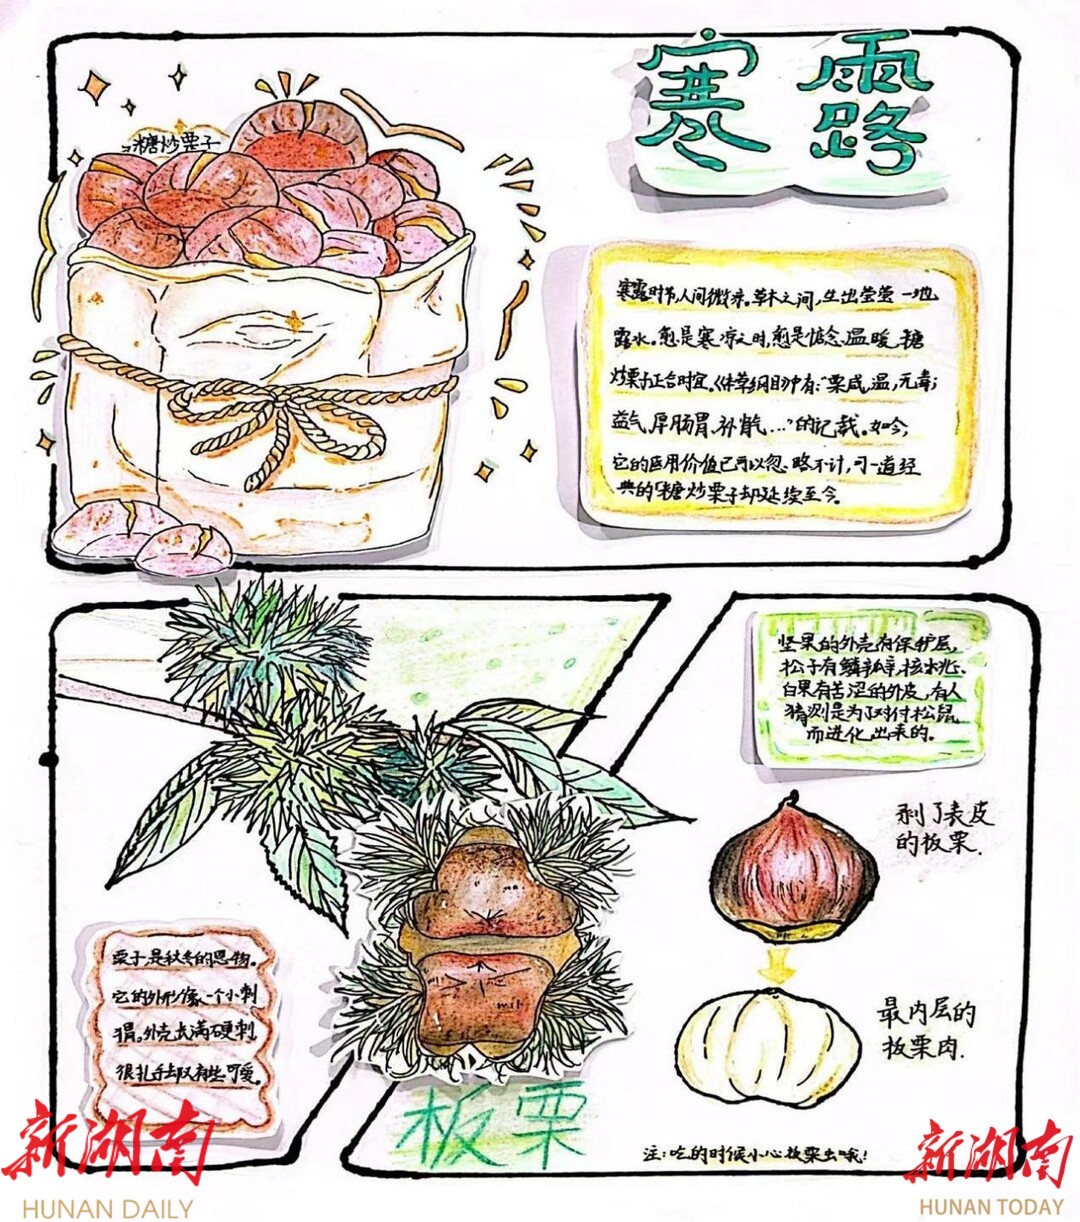 寒露
糖炒栗子
寒露时节,人间微凉。草木之间,生出莹莹一地
露水。愈是寒凉之时,愈是惦念温暖,糖
炒栗子正合时宜。《本草纲目》中有:“栗咸,温,无毒;
益气、厚肠胃、补肾气…”的记载。如今,
它的医用价值已可以忽略不计,可一道经
典的糖炒栗子却延续至今。
坚果的外壳有保护层,
松子有鳞瓣,核桃、
白果有苦涩的外皮,有人
猜测是为了对付松鼠
而进化出来的。
剥了表皮
的板栗.
最内层的
板栗肉.
栗子是秋冬的恩物。
它的外形像一个小刺
猬。外壳长满硬刺,
很扎手却又有些可爱。
板栗
注:吃的时候小心板栗虫哦!
新湖南
HUNAN DAILY
新湖南
HUNAN TODAY